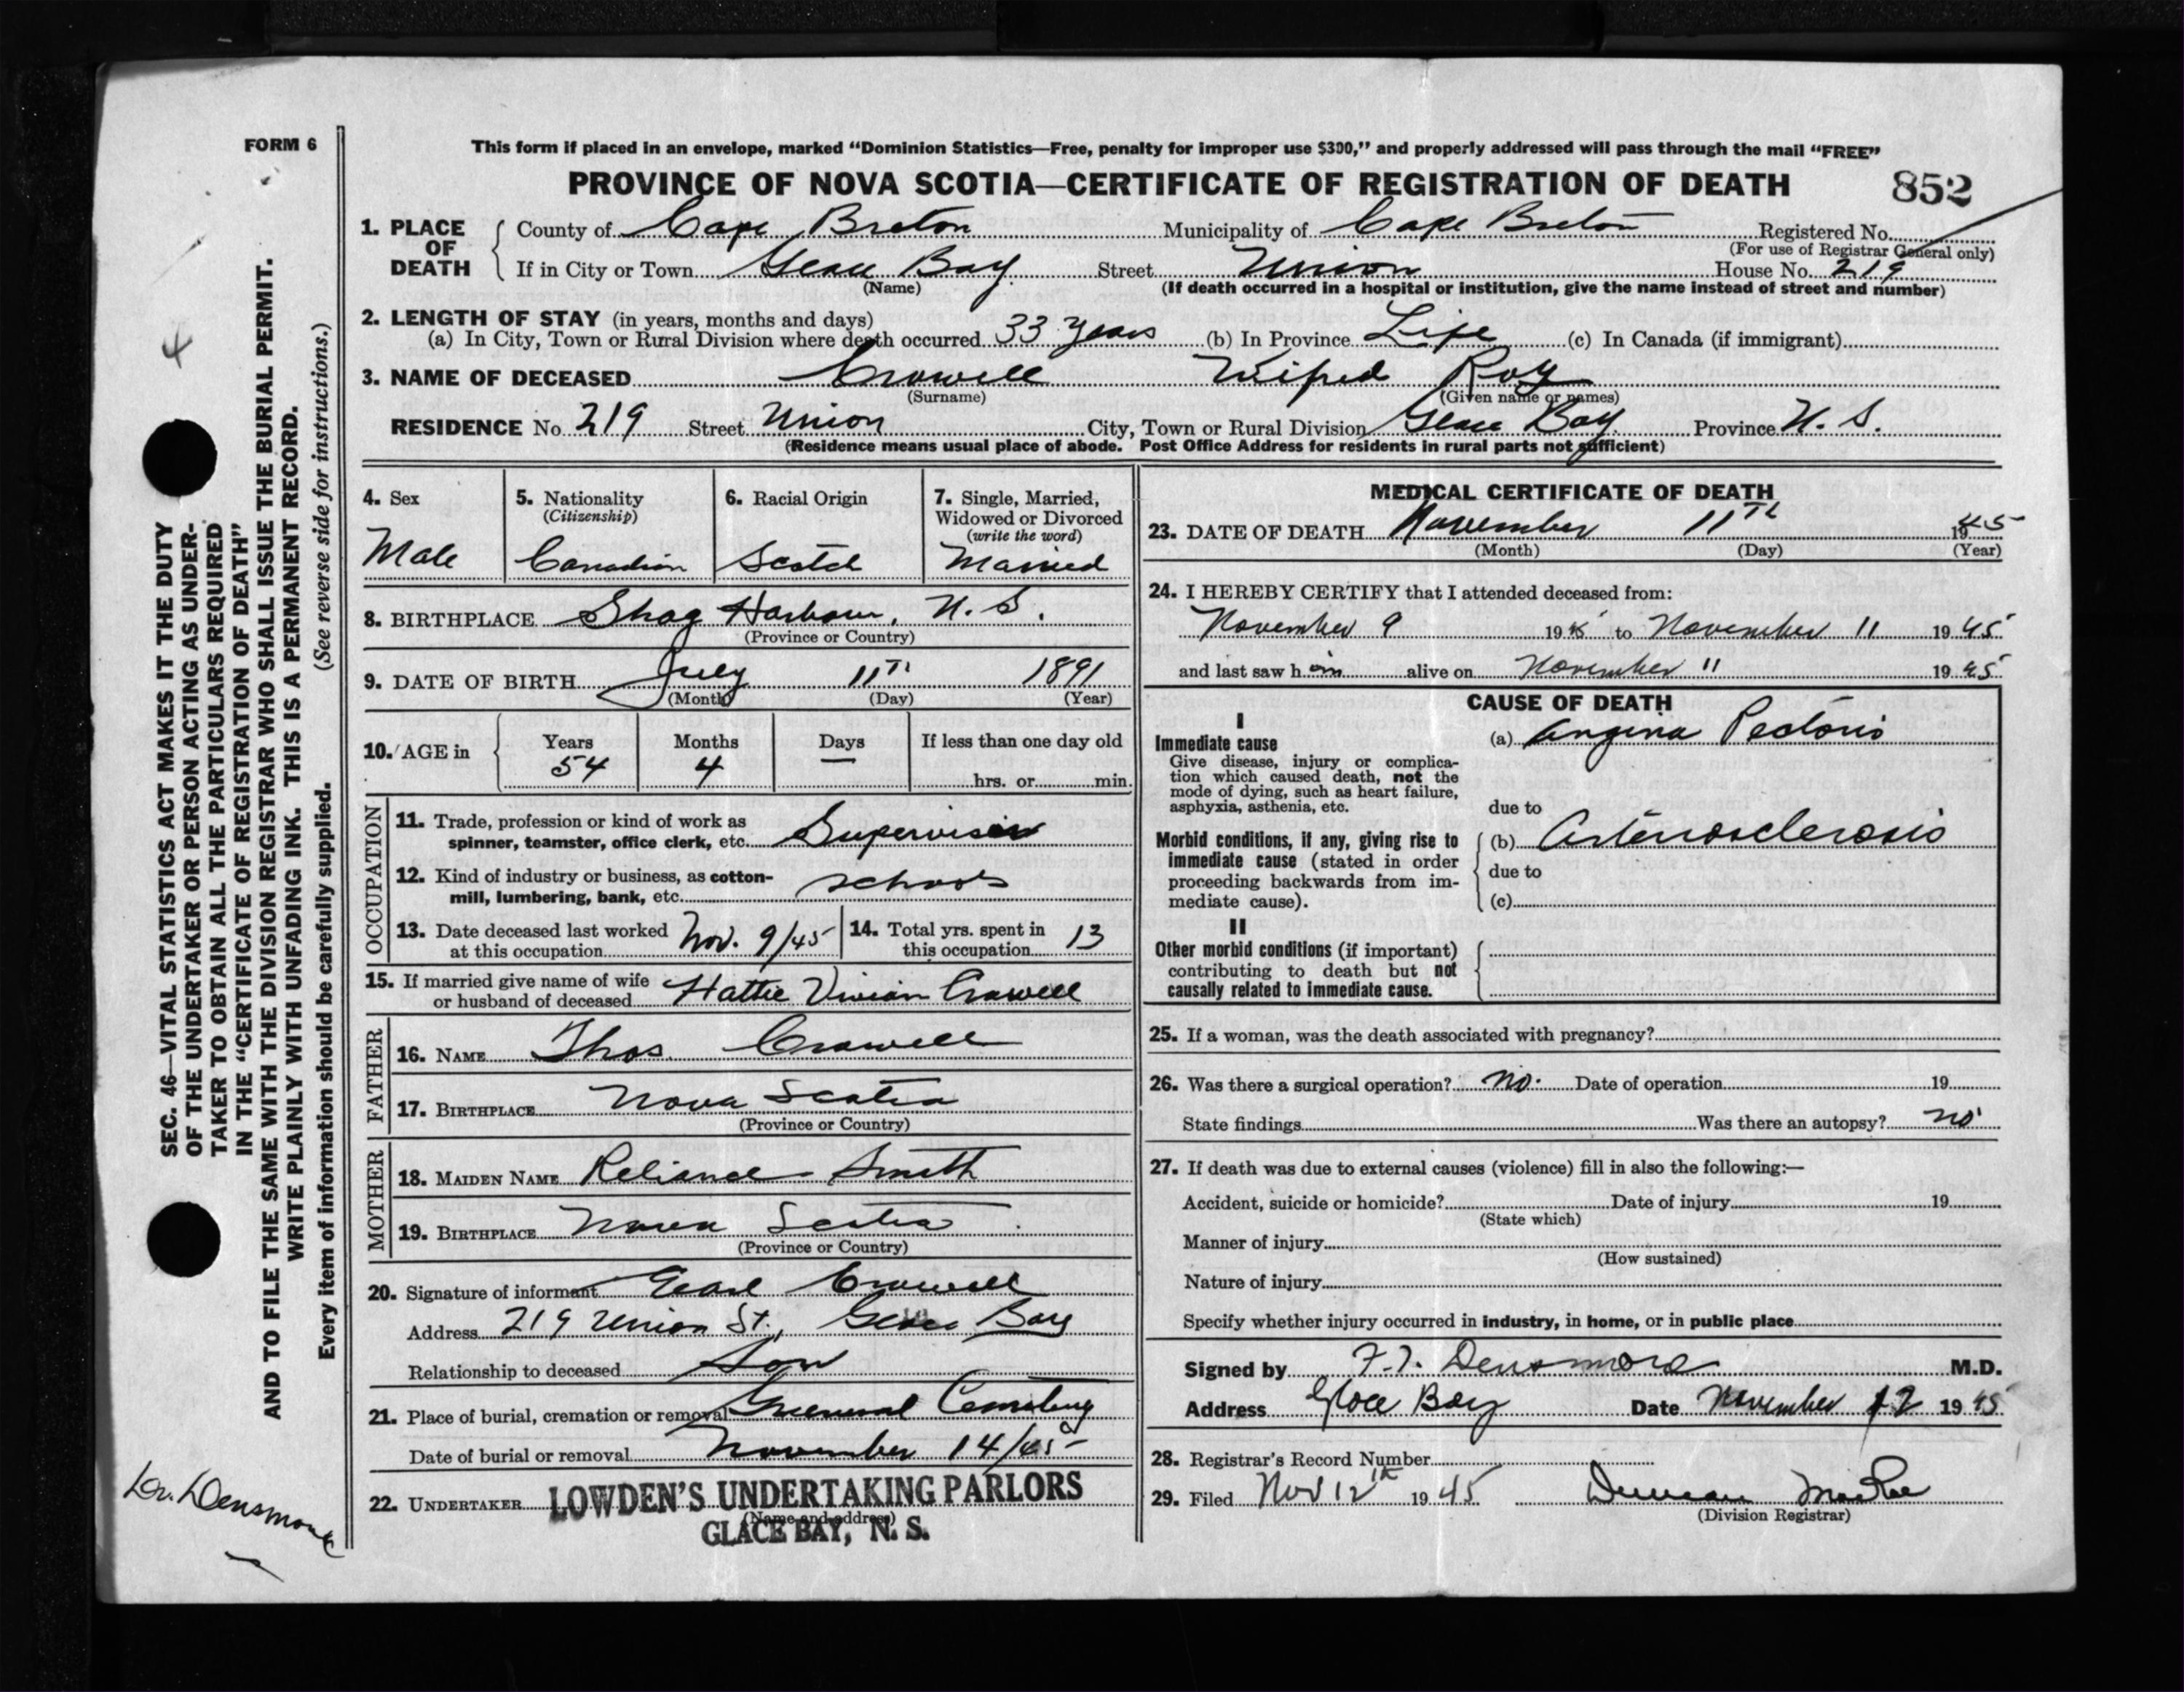 FORM 6
This form if placed in an envelope, marked “Dominion Statistics—Free, penalty for improper use $300,” and properly addressed will pass through the mail “FREE”
PROVINCE OF NOVA SCOTIA—CERTIFICATE OF REGISTRATION OF DEATH 852
1. PLACE OF DEATH
County of Cape Breton Municipality of Cape Breton Registered No.
(For use of Registrar General only)
If in City or Town Glace Bay Street Union House No. 219
(Name) (If death occurred in a hospital or institution, give the name instead of street and number)
2. LENGTH OF STAY (in years, months and days)
(a) In City, Town or Rural Division where death occurred 33 years (b) In Province Life (c) In Canada (if immigrant)
3. NAME OF DECEASED Crowell Wilfred Roy
(Surname) (Given name or names)
RESIDENCE No. 219 Street Union City, Town or Rural Division Glace Bay Province N. S.
(Residence means usual place of abode. Post Office Address for residents in rural parts not sufficient)
4. Sex
Male
5. Nationality
(Citizenship)
Canadian
6. Racial Origin
Scotch
7. Single, Married,
Widowed or Divorced
(write the word)
Married
8. BIRTHPLACE Shag Harbour, N. S.
(Province or Country)
9. DATE OF BIRTH July 11th 1891
(Month) (Day) (Year)
10. AGE in Years Months Days If less than one day old
54 4 — hrs. or min.
OCCUPATION
11. Trade, profession or kind of work as
spinner, teamster, office clerk, etc. Supervisor
12. Kind of industry or business, as cotton-
mill, lumbering, bank, etc. Schools
13. Date deceased last worked
at this occupation Nov. 9/45
14. Total yrs. spent in
this occupation 13
15. If married give name of wife
or husband of deceased Hattie Vivian Crowell
FATHER
16. NAME Thos. Crowell
17. BIRTHPLACE Nova Scotia
(Province or Country)
MOTHER
18. MAIDEN NAME Reliance Smith
19. BIRTHPLACE Nova Scotia
(Province or Country)
20. Signature of informant Earl Crowell
Address 219 Union St., Glace Bay
Relationship to deceased Son
21. Place of burial, cremation or removal Greenwood Cemetery
Date of burial or removal November 14/45
22. UNDERTAKER LOWDEN'S UNDERTAKING PARLORS
(Name and address)
GLACE BAY, N. S.
MEDICAL CERTIFICATE OF DEATH
23. DATE OF DEATH November 11th 1945
(Month) (Day) (Year)
24. I HEREBY CERTIFY that I attended deceased from:
November 9 1945 to November 11 1945
and last saw him alive on November 11 1945
CAUSE OF DEATH
I
Immediate cause
Give disease, injury or complica-
tion which caused death, not the
mode of dying, such as heart failure,
asphyxia, asthenia, etc.
(a) Angina Pectoris
due to
Morbid conditions, if any, giving rise to
immediate cause (stated in order
proceeding backwards from im-
mediate cause).
(b) Arteriosclerosis
due to
(c)
II
Other morbid conditions (if important)
contributing to death but not
causally related to immediate cause.
25. If a woman, was the death associated with pregnancy?
26. Was there a surgical operation? No. Date of operation 19
State findings Was there an autopsy? No
27. If death was due to external causes (violence) fill in also the following:—
Accident, suicide or homicide? Date of injury 19
(State which)
Manner of injury
(How sustained)
Nature of injury
Specify whether injury occurred in industry, in home, or in public place
Signed by F.T. Densmore M.D.
Address Glace Bay Date November 12 1945
28. Registrar's Record Number
29. Filed Nov 12th 1945 Duncan
(Division Registrar)
SEC. 46—VITAL STATISTICS ACT MAKES IT THE DUTY
OF THE UNDERTAKER OR PERSON ACTING AS UNDER-
TAKER TO OBTAIN ALL THE PARTICULARS REQUIRED
IN THE “CERTIFICATE OF REGISTRATION OF DEATH”
AND TO FILE THE SAME WITH THE DIVISION REGISTRAR WHO SHALL ISSUE THE BURIAL PERMIT.
WRITE PLAINLY WITH UNFADING INK. THIS IS A PERMANENT RECORD.
Every item of information should be carefully supplied. (See reverse side for instructions.)
4
Dr. Densmore